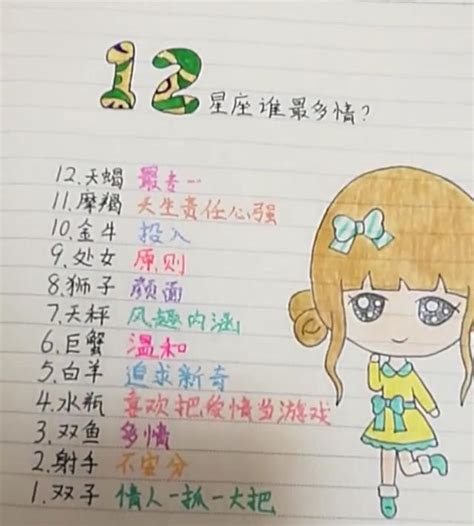 12星座谁最多情?
12.天蝎 最专一
11.摩羯 天生责任心强
10.金牛 投入
9.处女 原则
8.狮子 颜面
7.天秤 风趣内涵
6.巨蟹 温和
5.白羊 追求新奇
4.水瓶 喜欢把爱情当游戏
3.双鱼 多情
2.射手 不安分
1.双子 情人一抓一大把